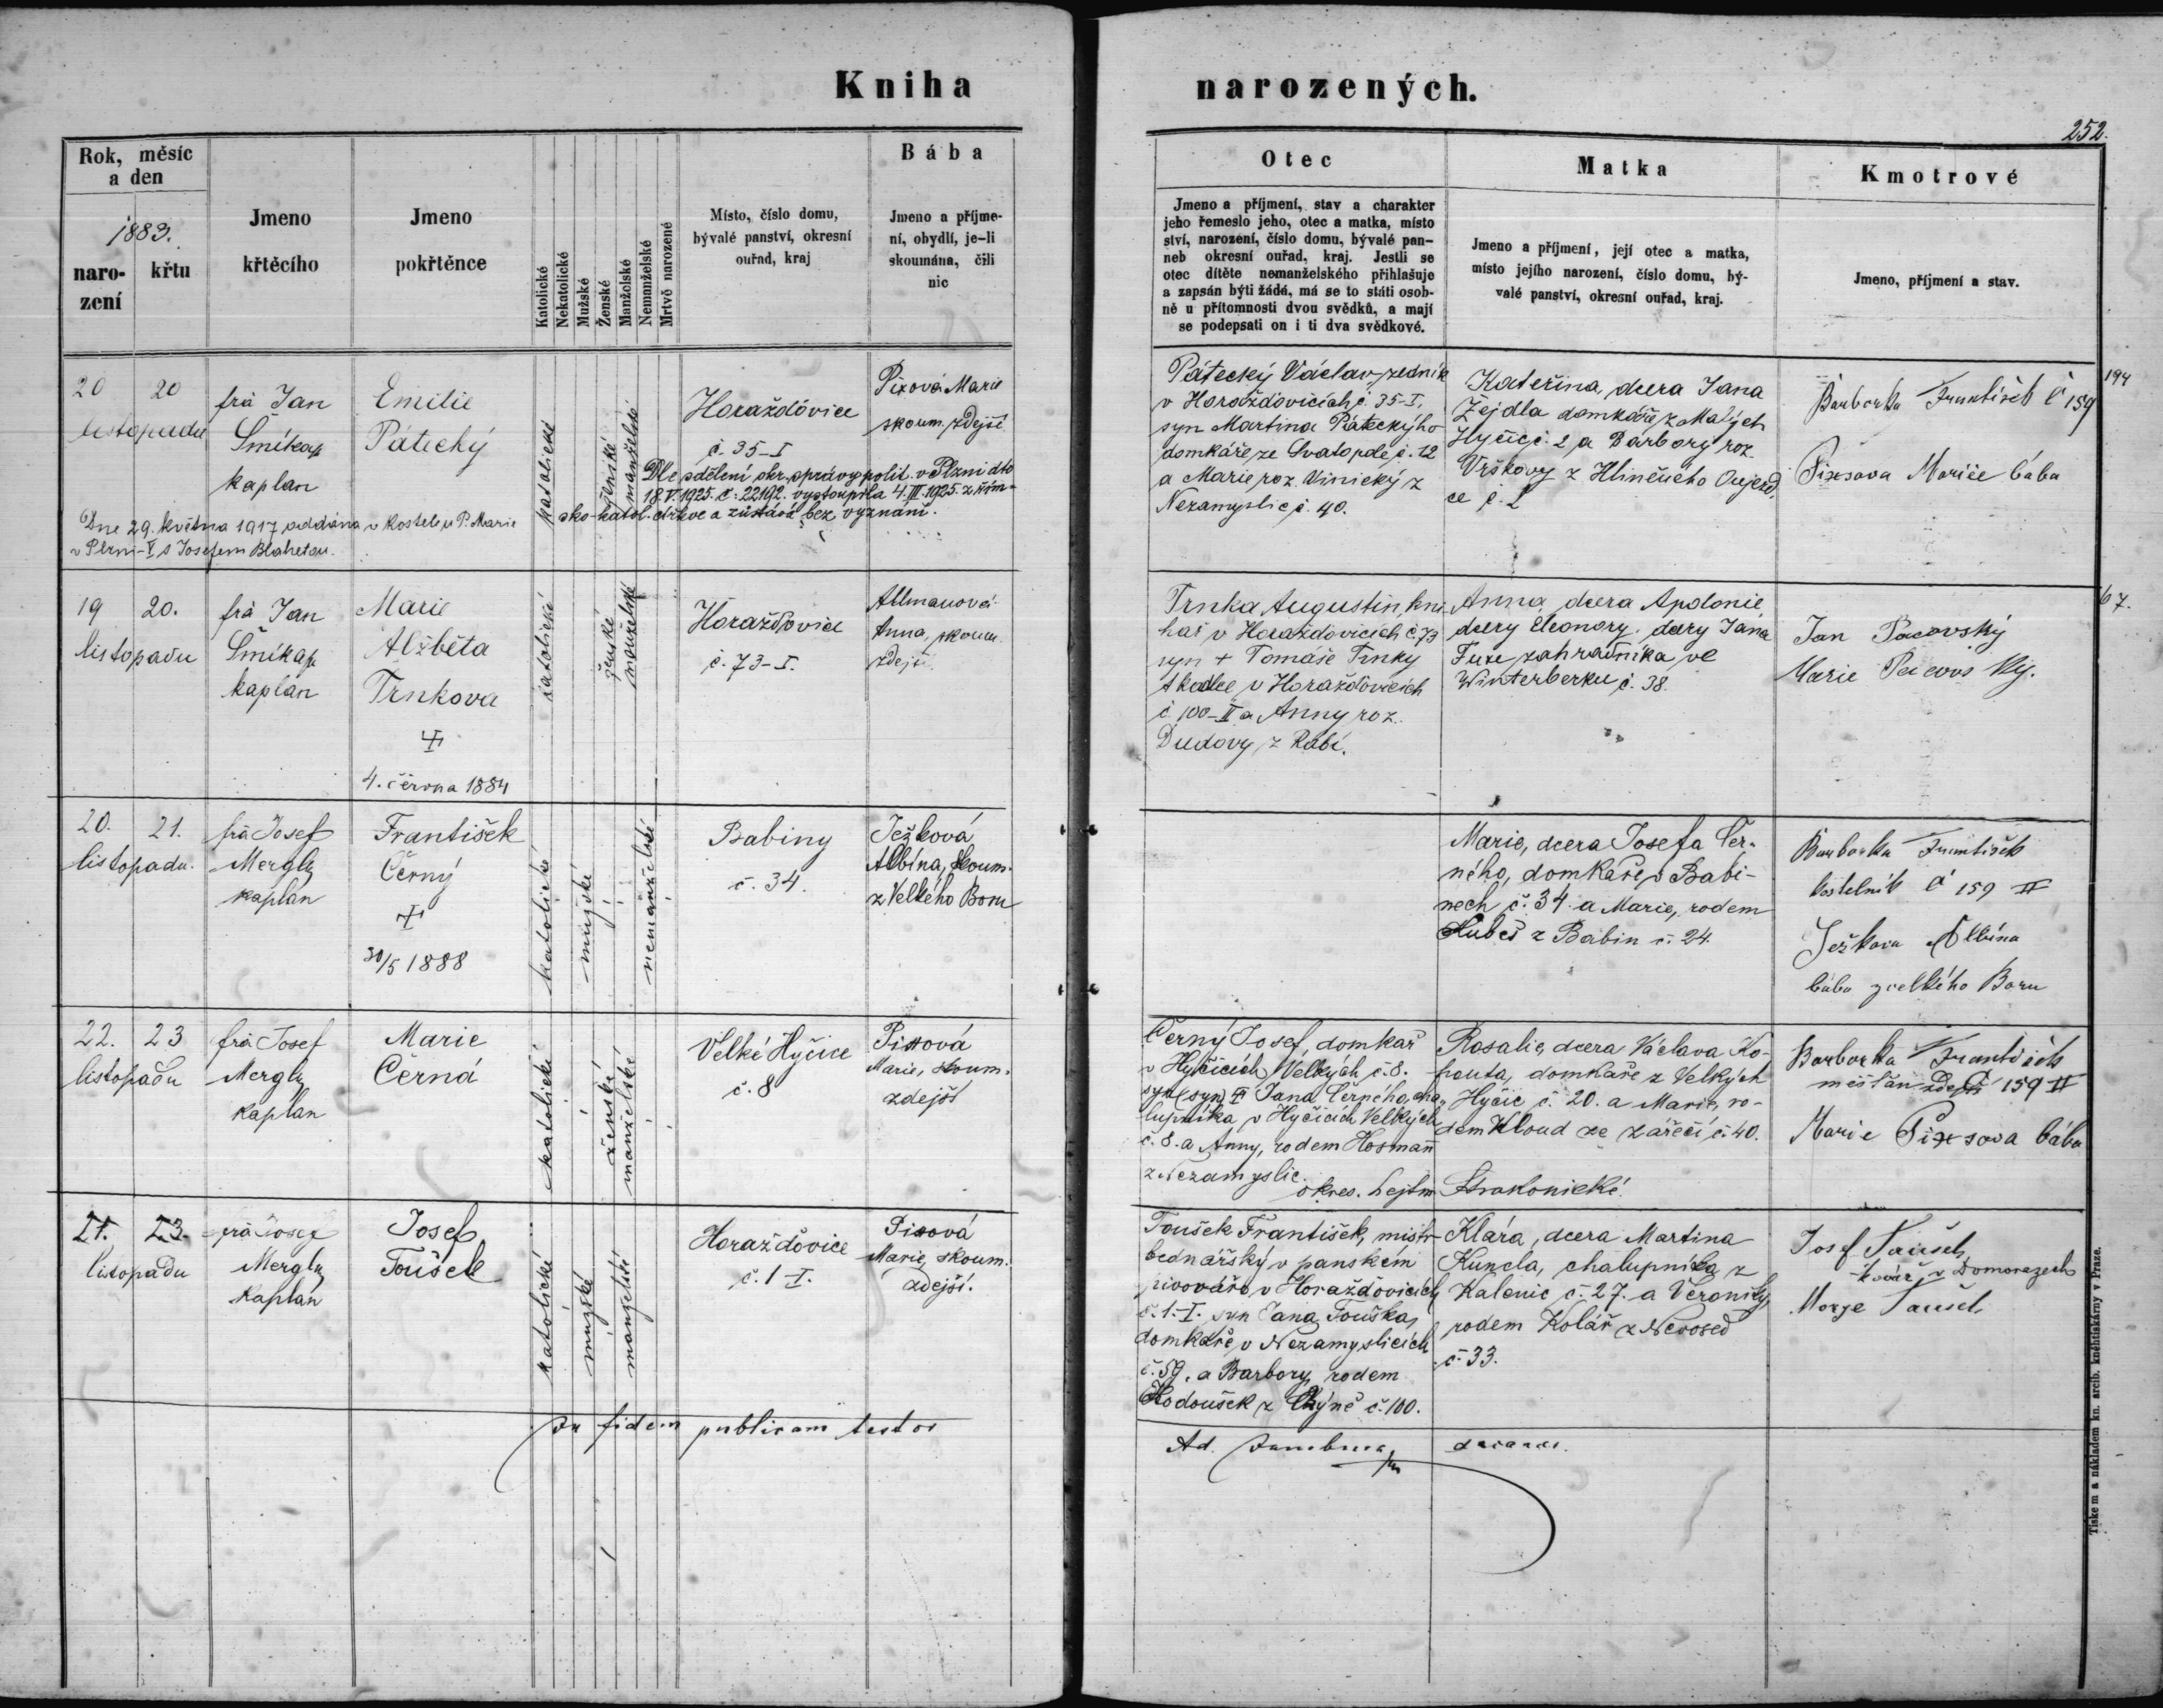 Kniha
narozených.
252.
Rok, měsíc
a den
1883.
naro-
zení
křtu
Jmeno
křtěcího
Jmeno
pokřtěnce
Katolické
Nekatolické
Mužské
Ženské
Manželské
Nemanželské
Mrtvě narozené
Místo, číslo domu,
bývalé panství, okresní
ouřad, kraj
Bába
Jmeno a příjme-
ní, obydlí, je-li
skoumána, čili
nic
Otec
Jmeno a příjmení, stav a charakter
jeho řemeslo jeho, otec a matka, místo
ství, narození, číslo domu, bývalé pan-
neb okresní ouřad, kraj. Jestli se
otec dítěte nemanželského přihlašuje
a zapsán býti žádá, má se to státi osob-
ně u přítomnosti dvou svědků, a mají
se podepsati on i ti dva svědkové.
Matka
Jmeno a příjmení, její otec a matka,
místo jejího narození, číslo domu, bý-
valé panství, okresní ouřad, kraj.
Kmotrové
Jmeno, příjmení a stav.
20 20
listopadu
frà Jan
Šmíkap
kaplan
Emilie
Pátecký
katolické
ženské
manželské
Horažďovice
č. 35-I
Pixová Marie
skoum. zdejší
Dle sdělení okr. správy polit. v Plzni dto
18.V.1925. č: 22192. vystoupila 4.III.1925. z řím-
sko-katol. církve a zůstává bez vyznání.
Dne 29. května 1917 oddána v kostele u P. Marie
v Plzni-V s Josefem Blahetou.
Pátecký Václav, zedník
v Horažďovicích č. 35-I,
syn Martina Páteckýho
domkáře ze Svatopole č. 12
a Marie roz. Vinický z
Nezamyslic č. 40.
Kateřina, dcera Jana
Žejdla domkáře z Malých
Hyčic č. 2 a Barbory roz.
Vrškovy z Hliněného Oujezd-
ce č. 2
Barborka František č 159
Pixsova Mariie bába
194
19 20.
listopadu
frà Jan
Šmíkap
kaplan
Marie
Alžběta
Trnkova
4. června 1884
katolické
ženské
manželské
Horažďovice
č. 73-I.
Allmanová
Anna, skoum.
zdejší.
Trnka Augustin kni-
hař v Horažďovicích č. 73
syn + Tomáše Trnky
tkadlce v Horažďovicích
č 100-II a Anny roz.
Dudovy z Rabí.
Anna dcera Apolonie
dcery Eleonory, dcery Jana
Fuxe zahradníka ve
Winterberku č. 38.
Jan Pacovský
Marie
67.
20. 21.
listopadu.
frà Josef
Mergly
kaplan
František
Černý
30/5 1888
katolické
mužské
nemanželské
Babiny
č. 34.
Ježková
Albína, skoum.
z Velkého Boru
Marie, dcera Josefa Čer-
ného, domkáře v Babi-
nech č. 34. a Marie, rodem
Kubeš z Babin č. 24.
Barborka František
kostelník č 159 II
Ježkova Albína
bába z velkého Boru
22. 23
listopadu
frà Josef
Mergly
kaplan
Marie
Černá
katolické
ženské
manželské
Velké Hyčice
č. 8
Pixová
Marie, skoum.
zdejší
Černý Josef, domkář
v Hyčicích Velkých č. 8.
syn (syn) Jana Černého, cha-
lupníka, v Hyčicích Velkých
č. 8. a Anny, rodem Hosmann
z Nezamyslic.
okres. hejtm. Strakonické.
Rosalie, dcera Václava Ko-
houta, domkáře z Velkých
Hyčic č. 20. a Marie, ro-
dem Kloud ze Zářečí, č. 40.
Barborka František
měšťan zdejší 159 II
Marie Pixsova bába
21. 23.
listopadu
frà Josef
Mergly
kaplan
Josef
Toušek
katolické
mužské
manželské
Horažďovice
č. 1-I.
Pixová
Marie, skoum.
zdejší.
Toušek František, mistr
bednářský v panském
pivováře v Horažďovicích
č. 1.-I. syn Jana Touška,
domkáře v Nezamyslicích
č. 59. a Barbory, rodem
Hodoušek z č. 100.
Klára, dcera Martina
Kuncla, chalupníka z
Kalenic č. 27. a Veroniky,
rodem Kolář z Nevosed
č. 33.
Josef Taušek
kovář v Domorazech
Taušek
In fidem publicam testor
Ad. decanus.
Tiskem a nákladem kn. arcib. knihtiskárny v Praze.